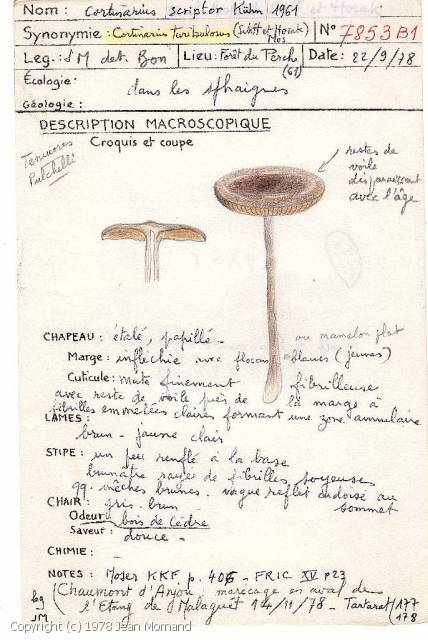 Nom : Cortinarius scriptor Kühn 1961
Synonymie : Cortinarius turibulosus (Schff et Horak) Mos
N° 7853B1
Leg : JM det. Bon
Lieu : Forêt du Perche (61)
Date : 22/9/78
Écologie : dans les sphaignes
Géologie :
DESCRIPTION MACROSCOPIQUE
Croquis et coupe
Tenuiores
Pulchelli
restes de
voile
disparaissant
avec l'âge
CHAPEAU : étalé, papillé - ou mamelon plat
Marge : infléchie avec flocons blancs (jeunes)
Cuticule : mate finement fibrilleuse
avec reste de voile près de la marge à
fibrilles emmêlées claires formant une zone annulaire
LAMES :
brun - jaune clair
STIPE : un peu renflé à la base
brunâtre rayé de fibrilles soyeuses
qq. mèches brunes. vague reflet indoisé au
sommet
CHAIR : gris. brun
Odeur : bois de cèdre
Saveur : douce -
CHIMIE : -
NOTES : Moser KKF p. 406 - FRIC XV p23
(Chaumont d'Anjou : marécage en aval de
l'Etang de Malaguet 14/11/78 - Tartarat (177
178
leg
JM
Copyright (c) 1978 Jean Mornand